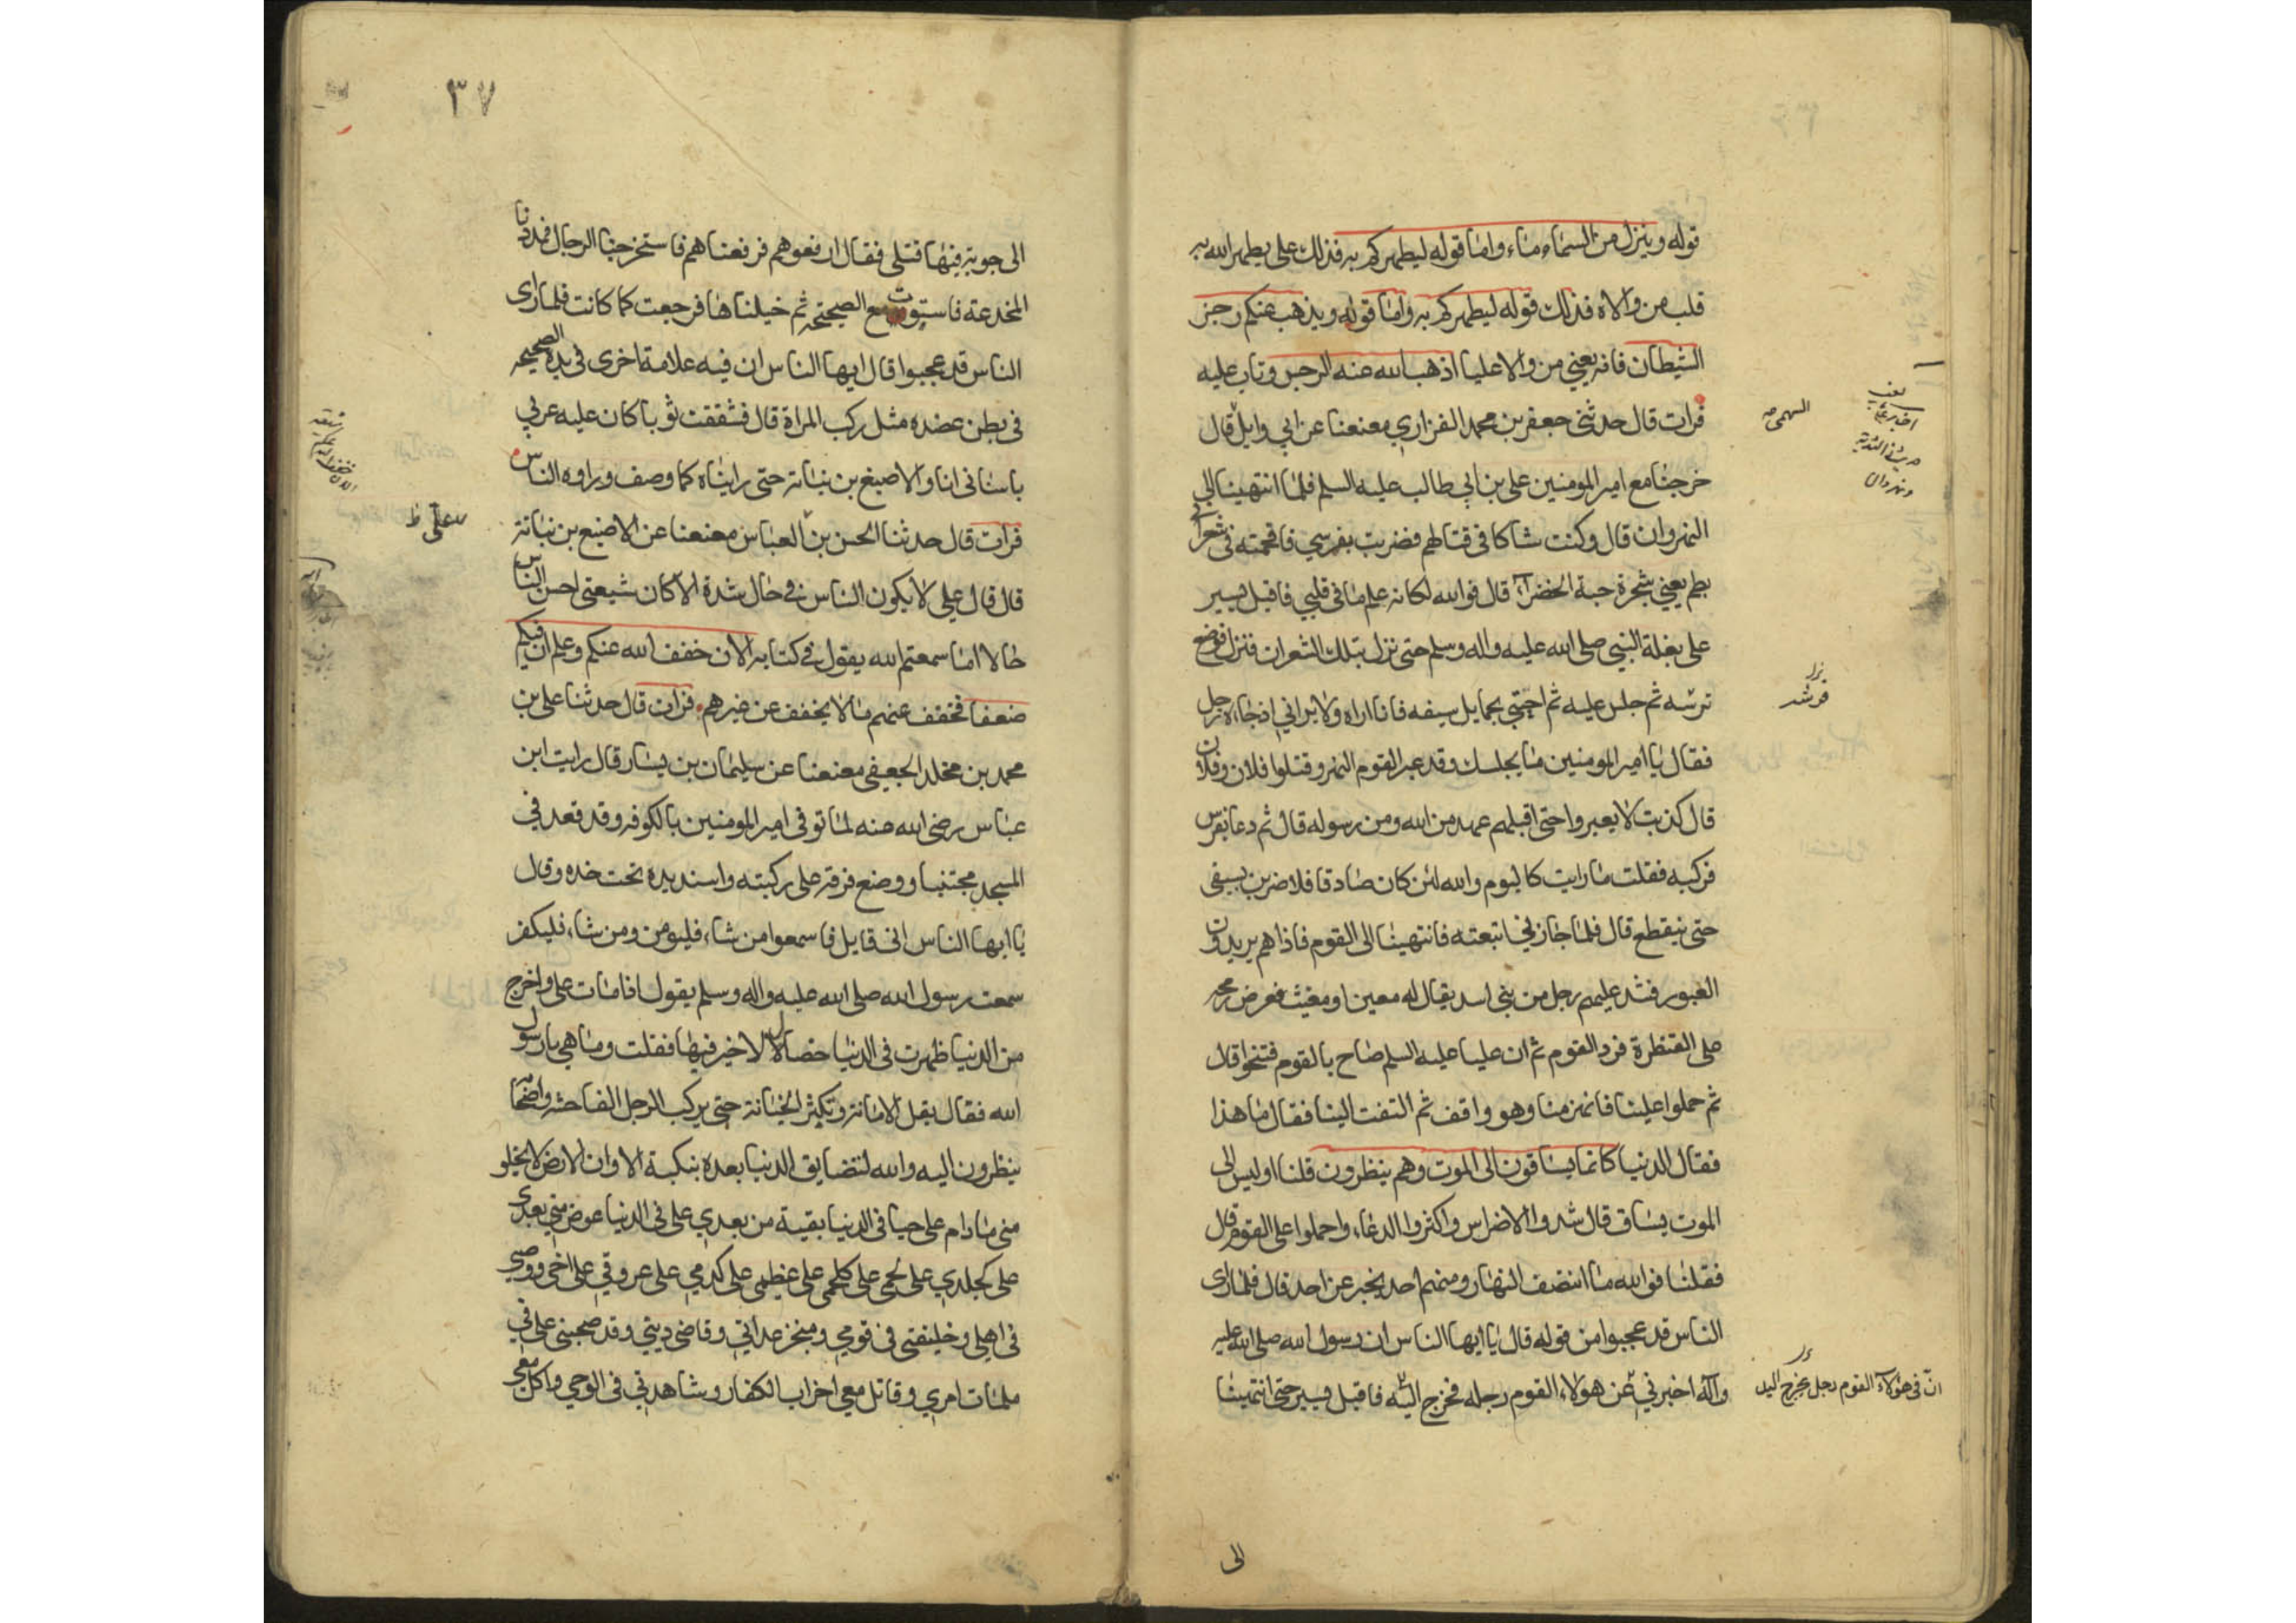 قوله وينزل من السماء ماء واما قوله ليطهركم به فذلك علي يطهر الله به
قلب من والاه فذلك قوله ليطهركم به واما قوله ويذهب عنكم رجز
الشيطان فانه يعني من والا عليا اذهب الله عنه الرجس وتاب عليه
فرات قال حدثني جعفر بن محمد الفزاري معنعنا عن ابي وايل قال
خرجنا مع امير المومنين علي بن ابي طالب عليه السلم فلما انتهينا الى
النهروان قال وكنت شاكا في قتالهم فضربت بفرسي فاقحمته في شعرات
بطم يعني شجرة حبة الخضرآء قال فوالله لكانه علم ما في قلبي فاقبل يسير
على بغلة النبي صلى الله عليه واله وسلم حتى نزل بتلك الشعران فنزل فوضع
ترسه ثم جلس عليه ثم احتبى بحمايل سيفه فانا اراه ولا يراني اذ جاءه رجل
فقال يا امير المومنين ما يجلسك وقد عبر القوم النهر وقتلوا فلان وفلان
قال كذبت لا يعبروا حتى اقبلهم عهد من الله ومن رسوله قال ثم دعا بفرس
فركبه فقلت ما رايت كاليوم والله لئن كان صادقا فلاضربن بسيفي
حتى ينقطع قال فلما جازني اتبعته فانتهينا الى القوم فاذا هم يريدون
العبور فشد عليهم رجل من بني اسد يقال له معين او مغيث فعرض رمحه
على القنطرة فرد القوم ثم ان عليا عليه السلم صاح بالقوم فتنحوا قال
ثم حملوا علينا فانهزمنا وهو واقف ثم التفت الينا فقال ما هذا
فقال الدنيا كانما يساقون الى الموت وهم ينظرون قلنا اوليس الى
الموت يساق قال شدوا الاضراس واكثروا الدعاء واحملوا على القوم قال
فقلنا فوالله ما انتصف النهار ومنهم احد يخبر عن احد قال فلما راى
الناس قد عجبوا من قوله قال يا ايها الناس ان رسول الله صلى الله عليه
وآله اخبرني عن هولاء القوم رجله فخرج اليه فاقبل يسير حتى انتهينا
ان في هؤلآء القوم رجل مخرج اليد
الى
٣٧
الى جوبة فيها قتلى فقال ارفعوهم فرفعناهم فاستخرجنا الرجال فمددنا
المخدعة فاستوت مع الصحيحة ثم خيلناها فرجعت كما كانت فلما راى
الناس قد عجبوا قال ايها الناس ان فيه علامة اخرى في يده الصحيحة
في بطن عضده مثل ركب المراة قال فشققت ثوبا كان عليه عربي
باسناني انا والاصبغ بن نباتة حتى رايناه كما وصف وراوه الناس
فرات قال حدثنا الحسن بن العباس معنعنا عن الاصبغ بن نباتة
قال قال علي لا يكون الناس في حال شدة الا كان شيعتي احسن الناس
حالا اما سمعتم الله يقول في كتابه الان خفف الله عنكم وعلم ان فيكم
ضعفا فخفف عنهم ما لا يخفف عن غيرهم فرات قال حدثنا علي بن
محمد بن مخلد الجعفي معنعنا عن سليمان بن يسار قال رايت ابن
عباس رضي الله عنه لما توفي امير المومنين بالكوفة وقد قعد في
المسجد محتبيا ووضع فرقه على ركبته واسند يده تحت خده وقال
يا ايها الناس اني قايل فاسمعوا من شاء فليومن ومن شاء فليكفر
سمعت رسول الله صلى الله عليه واله وسلم يقول اذا مات علي واخرج
من الدنيا ظهرت في الدنيا خصال لا خير فيها فقلت وما هي يا رسول
الله فقال يقل الامانة وتكثر الخيانة حتى يركب الرجل الفاحشة واصحابه
ينظرون اليه والله لتضايق الدنيا بعده بنكبة الا وان الارض لا يخلو
مني ما دام علي حيا في الدنيا بقية من بعدي علي في الدنيا عوض مني بعدي
علي كجلدي علي لحمي علي كلحمي علي عظمي علي كدمي علي عروقي علي اخي ووصيي
في اهلي وخليفتي في قومي ومنجز عداتي وقاضي ديني وقد صحبني علي في
ملمات امري وقاتل معي احزاب الكفار وشاهدني في الوحي واكل معي